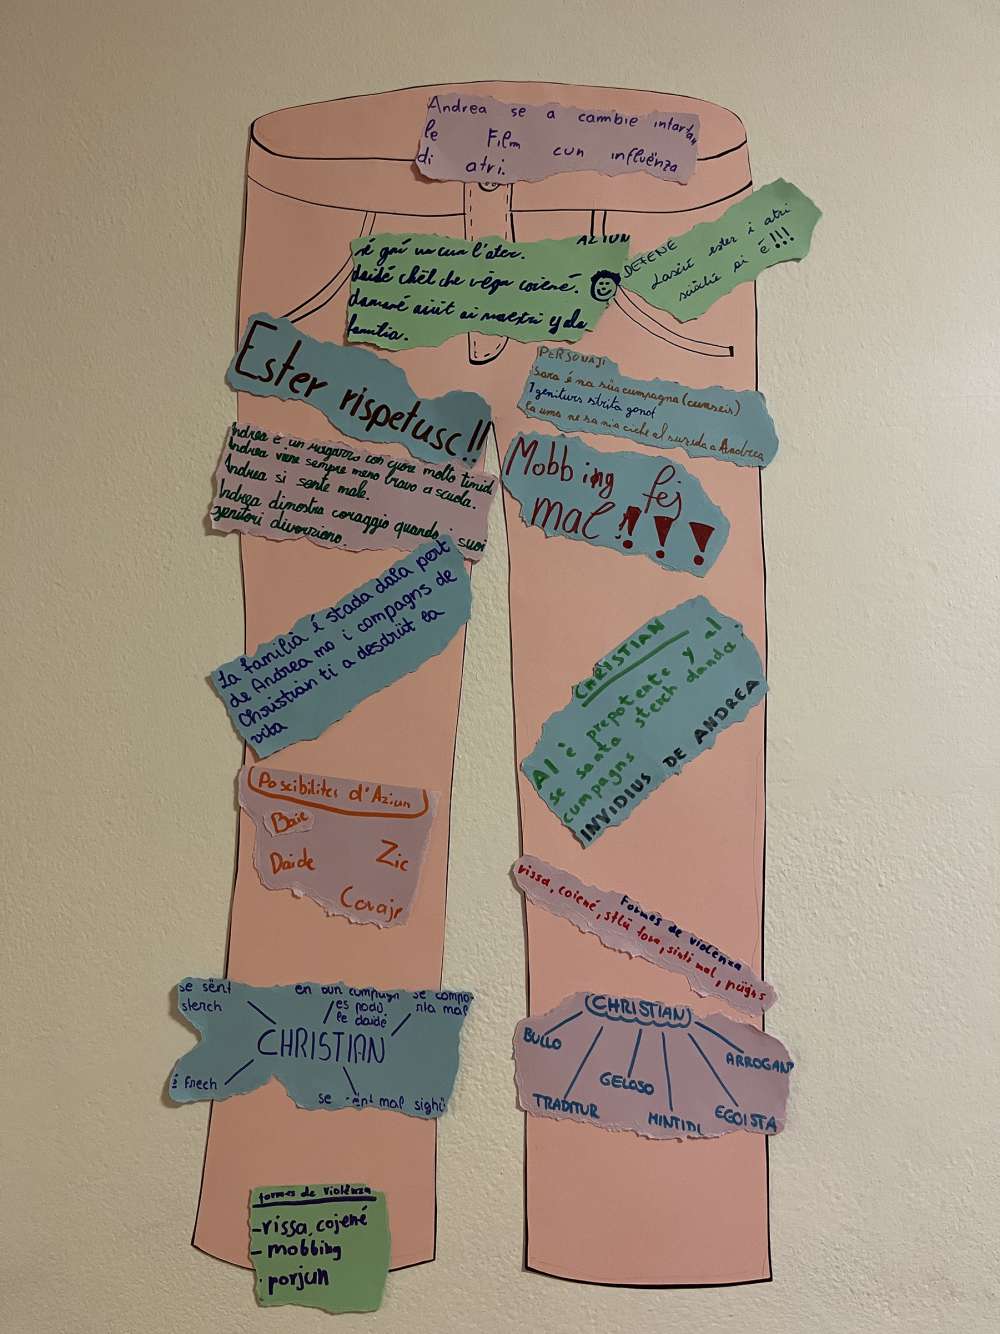 Andrea se a cambie intartan
le Film cun influënza
di atri.
AZIUN
gní un cun l'ater.
daidé chël che vëgn coiené.
damané aiüt ai maestri y dla
familia.
DEFENE
Lascé ester i atri
sciöche ai é!!!
Ester rispetusc!!
PERSONAJI
Sara é na süa cumpagna (cunseis)
I geniturs strita gonot
La uma ne sa nia ciche al suzeda a Andrea
Andrea è un ragazzo con cuore molto timido
Andrea viene sempre meno bravo a scuola.
Andrea si sente male.
Andrea dimostra coraggio quando i suoi
genitori divorziono.
Mobbing fej
mal!!!
La familia é stada dala pert
de Andrea mo i compagns de
Christian ti a desdrüt la
vita
CHRISTIAN
Al é prepotente y al
se santa sterch danda
cumpagns
INVIDIUS DE ANDREA
Poscibilites d'Aziun
Baie
Daide
Zic
Coraje
Formes de violënza
rissa, coiené, stlü fora, sinti mal, pügns
se sënt
sterch
en bun cumpagn
es podü
le daidé
se compo-
rta mal
CHRISTIAN
é frech
se sënt mal sighü
CHRISTIAN
BULLO
TRADITUR
GELOSO
MINTIDÚ
EGOISTA
ARROGANT
formes de violënza
-rissa, cojené
- mobbing
- porjun